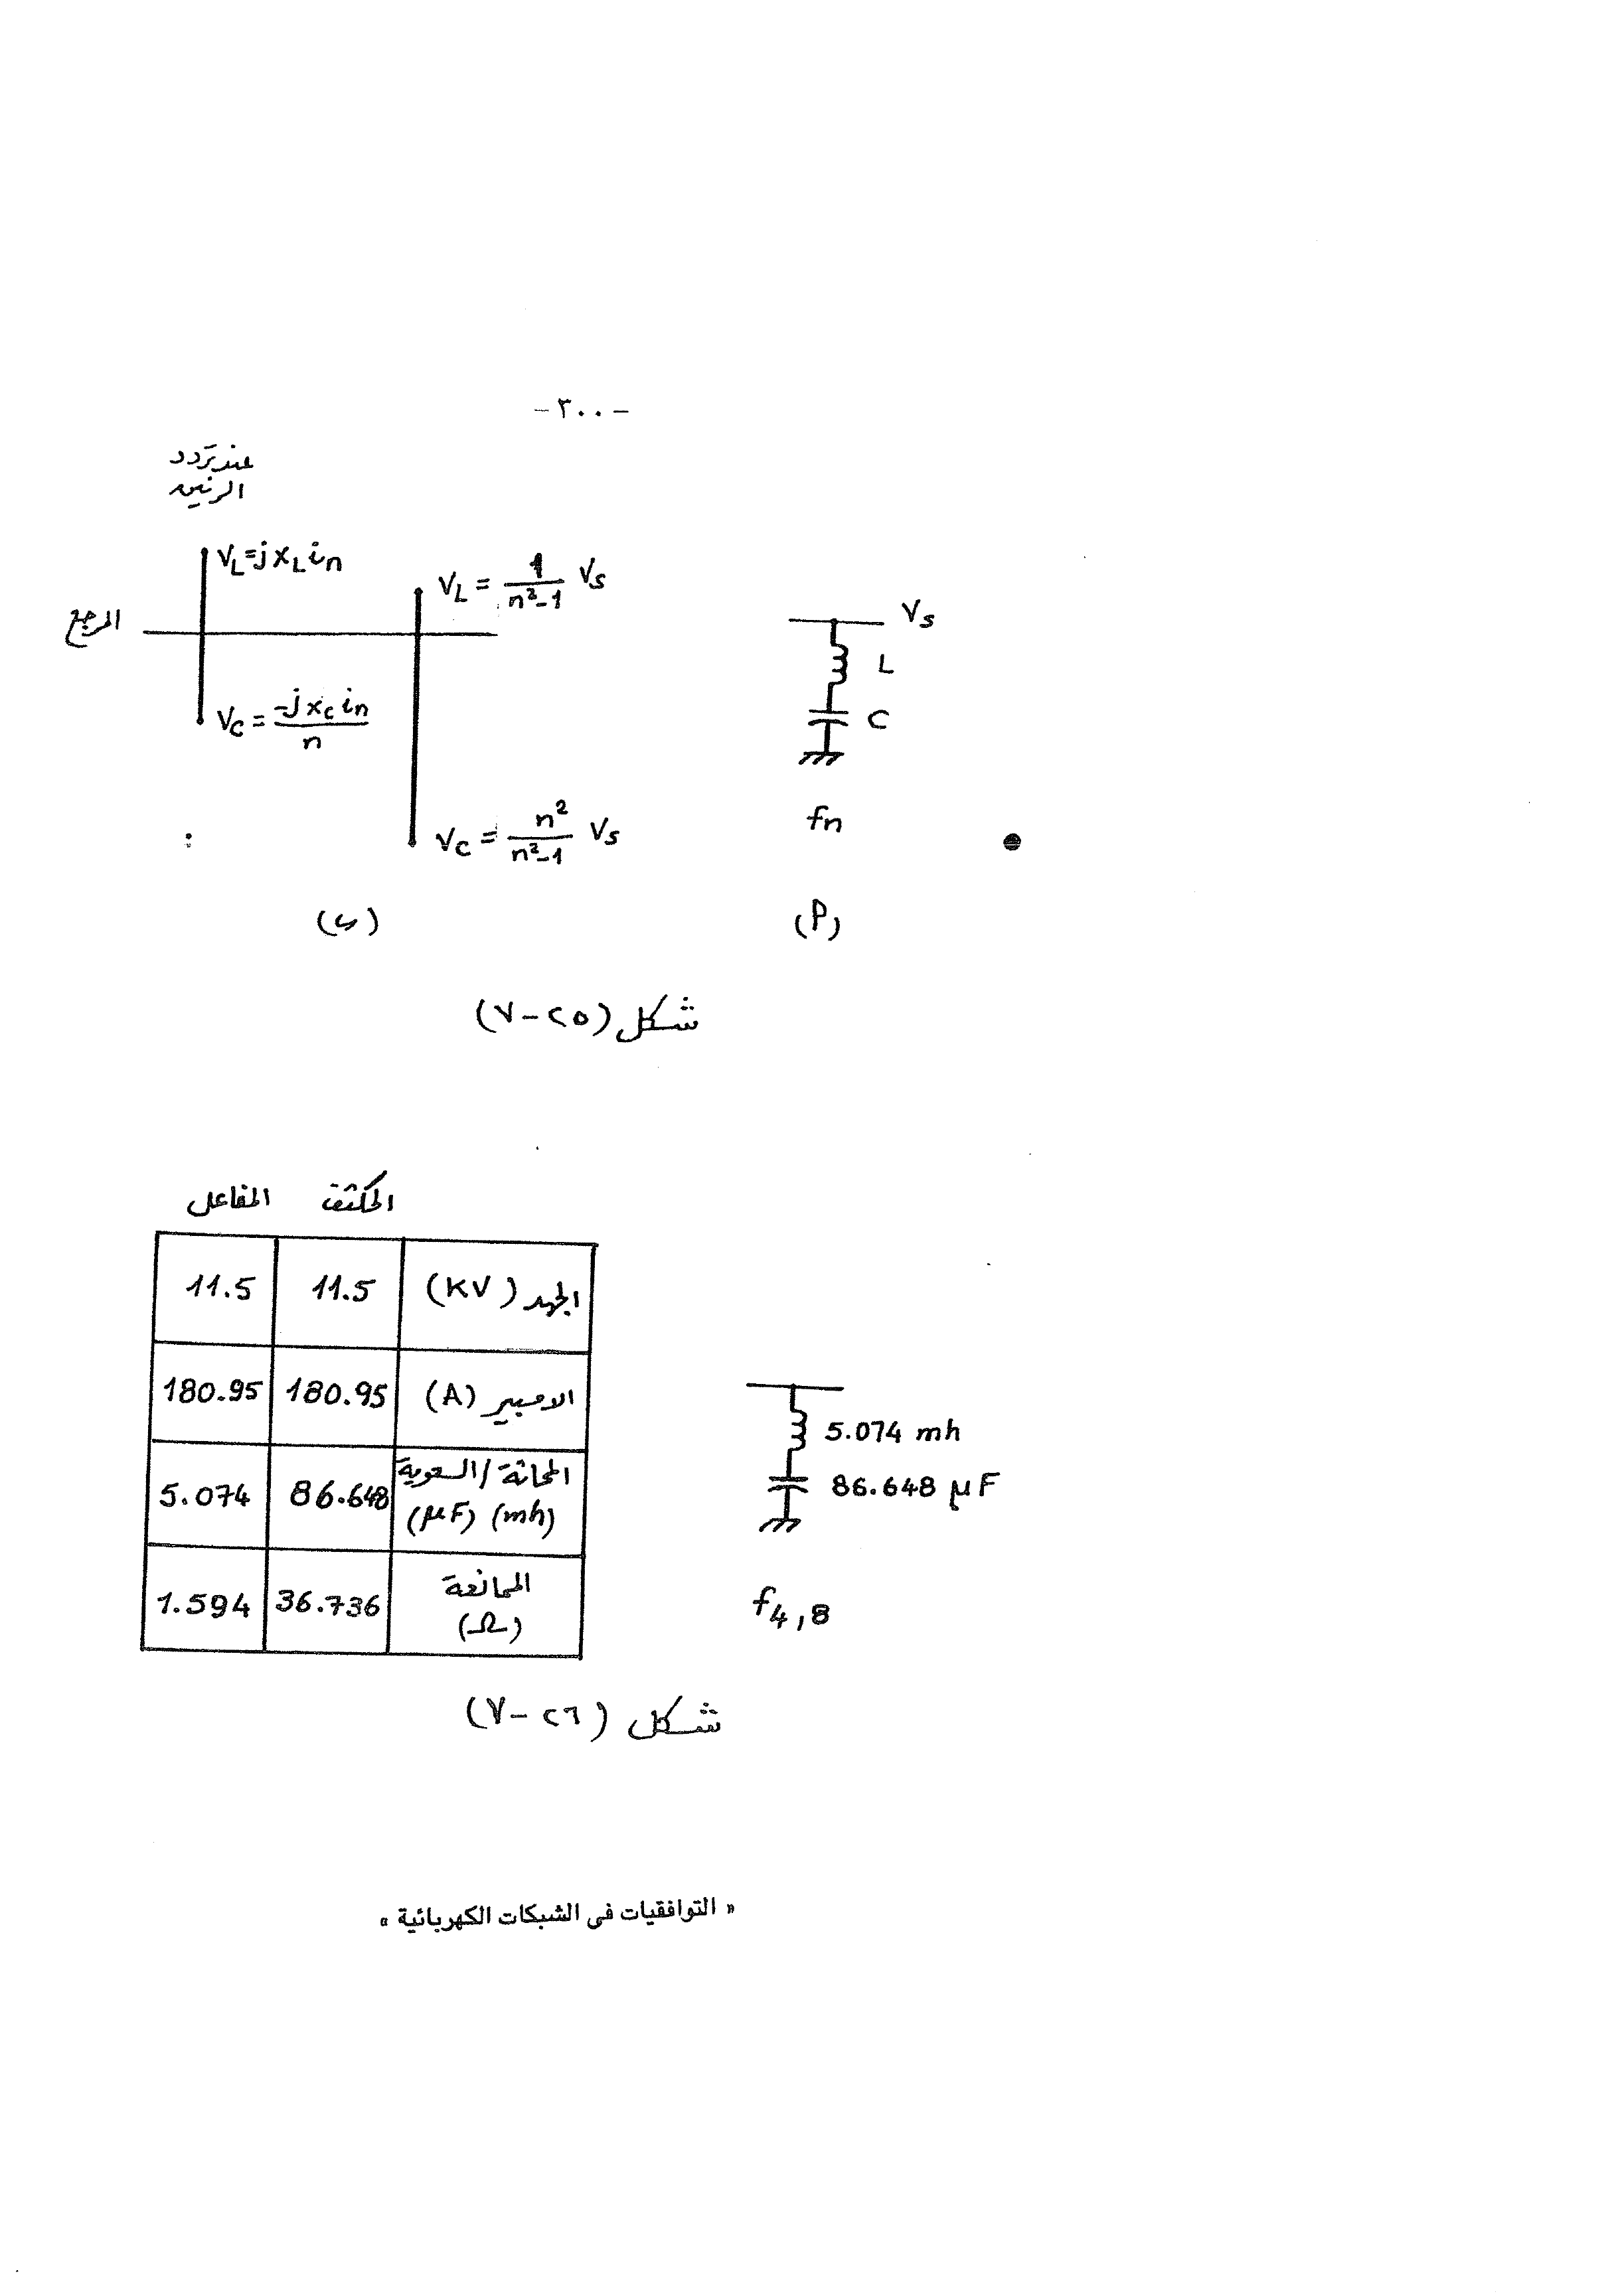 - ٣٠٠ -
عند تردد
الرنين
V_L = j X_L i_n
V_L = 1/(n²-1) V_S
المرجع
V_C = -j X_C i_n / n
V_C = n²/(n²-1) V_S
(ب)
V_S
L
C
fn
(أ)
شكل (٢٥-٧)
المكثف المفاعل
الجهد (KV) 11.5 11.5
الامبير (A) 180.95 180.95
المحاثة / السعوية (mh) (μF) 86.648 5.074
الممانعة (Ω) 36.736 1.594
5.074 mh
86.648 μF
f4,8
شكل (٢٦-٧)
« التوافقيات فى الشبكات الكهربائية »